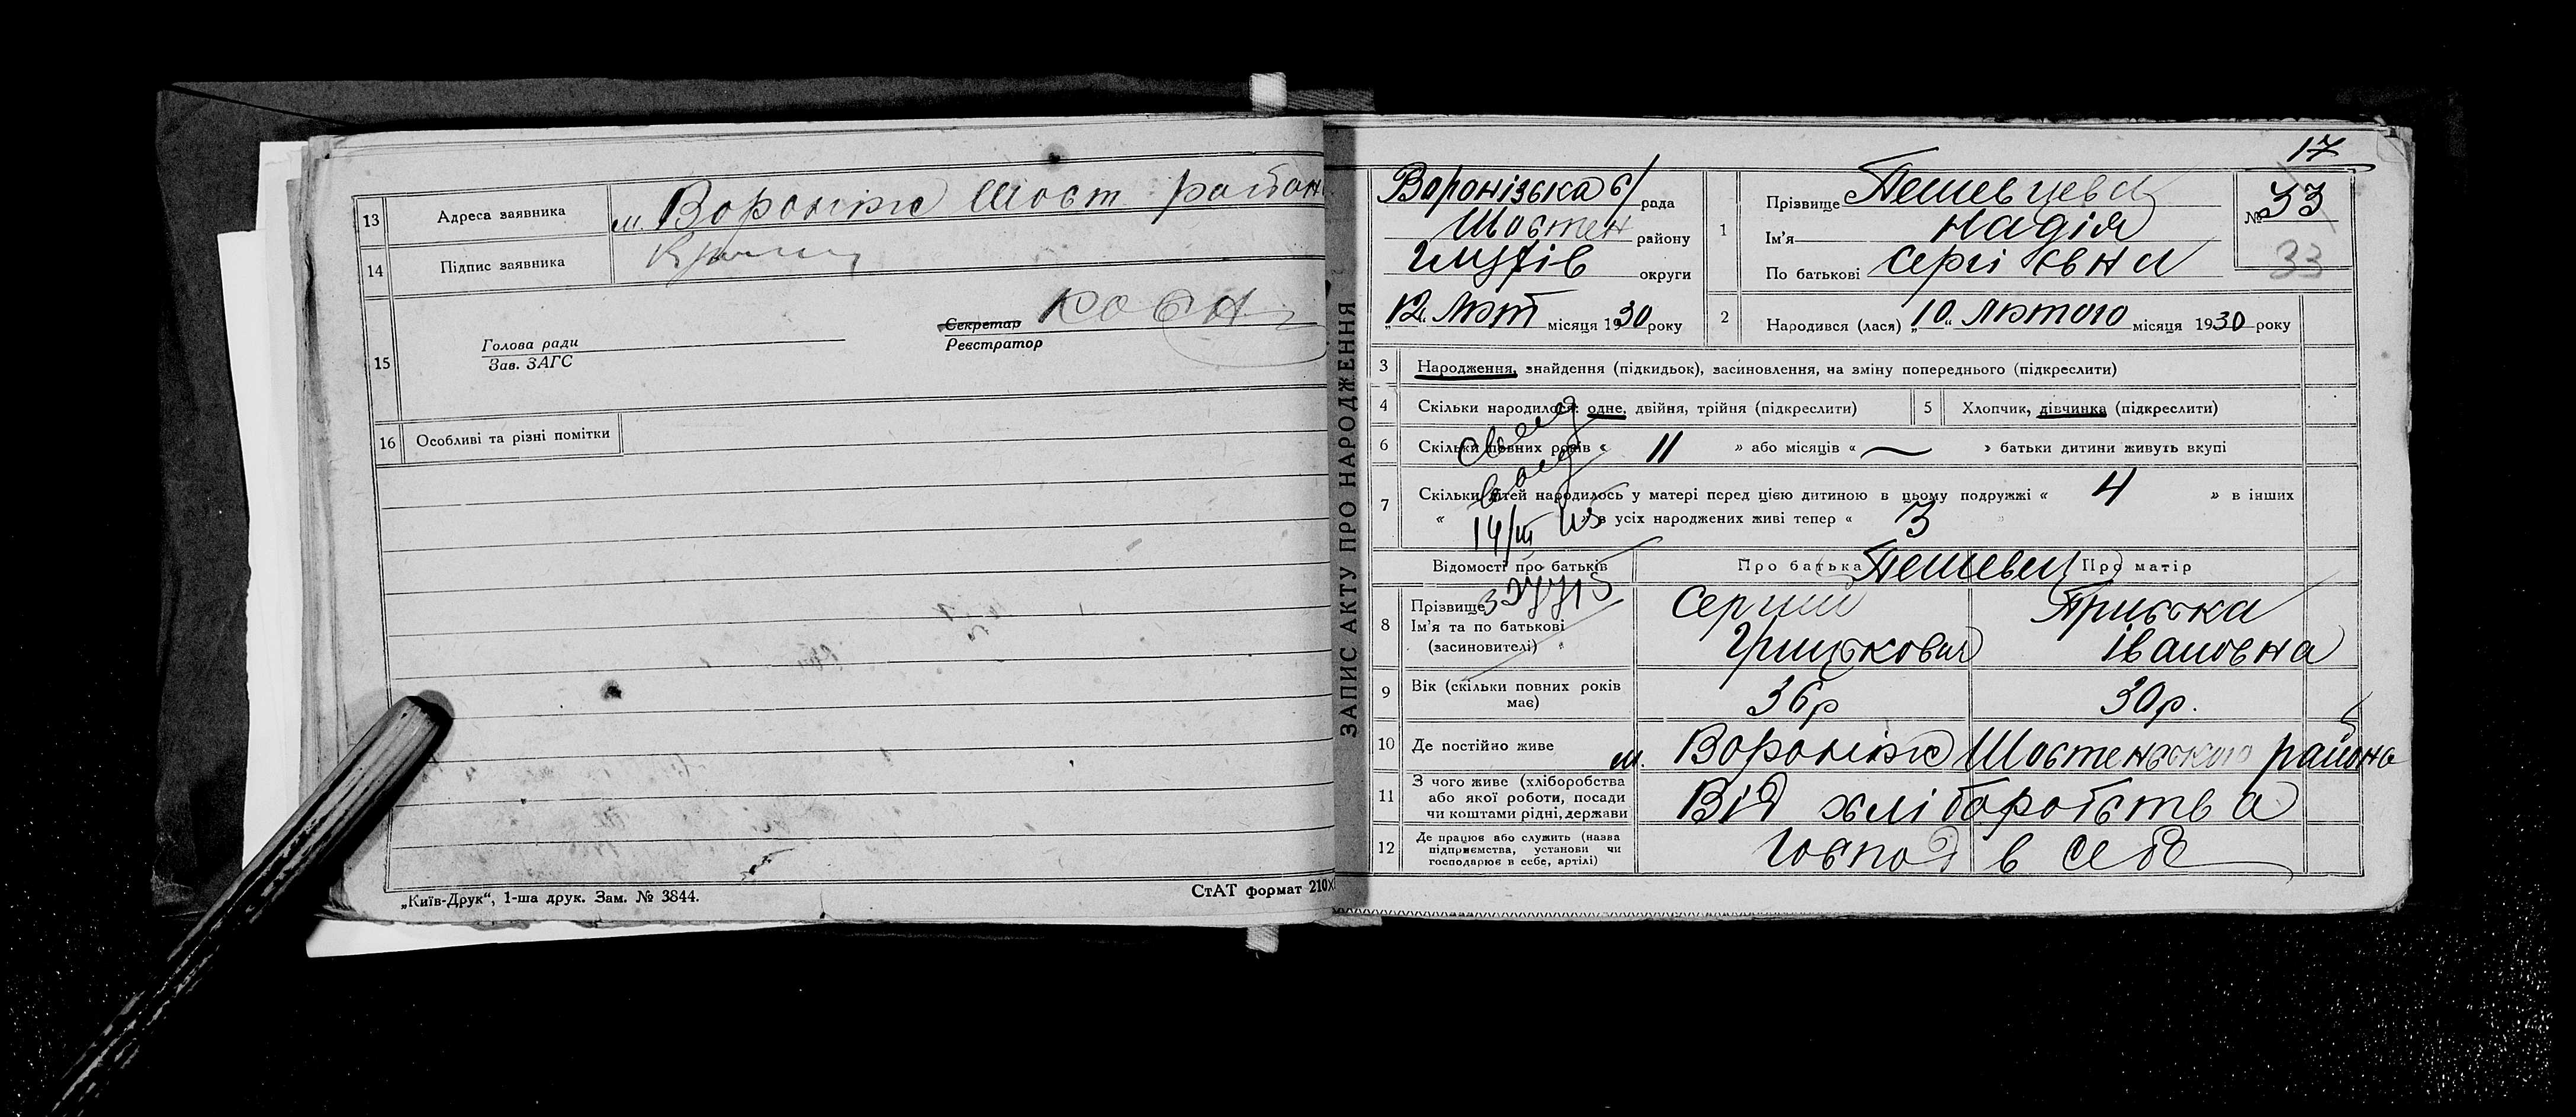 13 Адреса заявника м. Вороніж Шост району
14 Підпис заявника
15 Голова ради
Зав. ЗАГС
Секретар
Реєстратор
16 Особливі та різні помітки
„Київ-Друк“, 1-ша друк. Зам. № 3844.
СтАТ формат 210х
ЗАПИС АКТУ ПРО НАРОДЖЕННЯ
17
Воронізька с/рада
Шостен району
Глухів округи
„12“ Лют місяця 1930 року
1 Прізвище Пешевцева
Ім'я Надія
По батькові Сергіївна
№ 33
33
2 Народився (лася) „10“ Лютого місяця 1930 року
3 Народження, знайдення (підкидьок), засиновлення, на зміну попереднього (підкреслити)
4 Скільки народилося: одне, двійня, трійня (підкреслити)
5 Хлопчик, дівчинка (підкреслити)
6 Скільки повних років « 11 » або місяців « — » батьки дитини живуть вкупі
7 Скільки дітей народилось у матері перед цією дитиною в цьому подружжі « 4 » в інших
« » в усіх народжених живі тепер « 3 »
14/III
Відомості про батьків
Про батька
Про матір
8 Прізвище
Ім'я та по батькові
(засиновителі)
Сергий
Грицькович
Приська
Івановна
9 Вік (скільки повних років має) 36р 30р.
10 Де постійно живе м. Вороніж Шостенського района
11 З чого живе (хліборобства
або якої роботи, посади
чи коштами рідні, держави
Від хліборобства
12 Де працює або служить (назва
підприємства, установи чи
господарює в себе, артілі)
Господ в себе